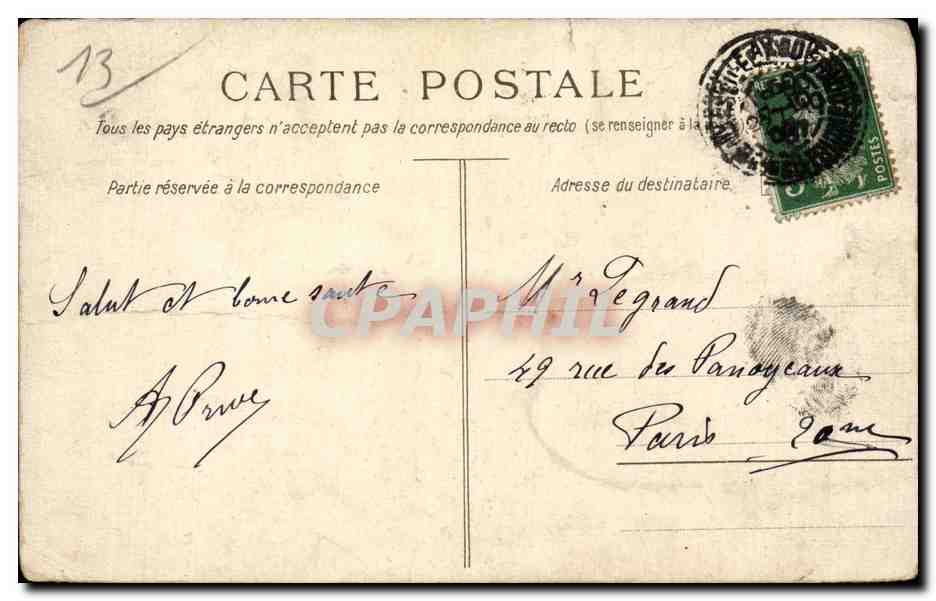 13
CARTE POSTALE
Tous les pays étrangers n'acceptent pas la correspondance au recto (se renseigner à la
Partie réservée à la correspondance
Adresse du destinataire
POSTES
Salut et bonne santé
Mr Legrand
49 rue des Panoyeaux
Paris 20me
CPAPHIL